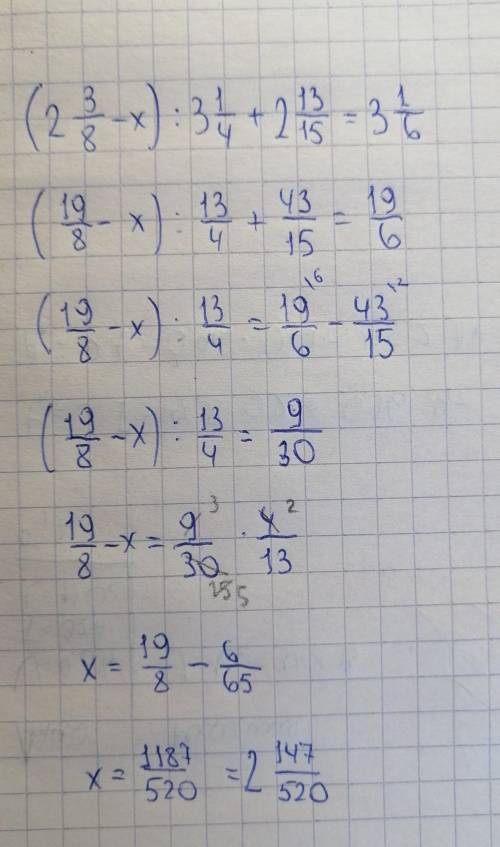 (2 3/8 - x) : 3 1/4 + 2 13/15 = 3 1/6
(19/8 - x) : 13/4 + 43/15 = 19/6
(19/8 - x) : 13/4 = 19\6/6 - 43\2/15
(19/8 - x) : 13/4 = 9/30
19/8 - x = 9 3/30 15 5 · 4 2/13
x = 19/8 - 6/65
x = 1187/520 = 2 147/520